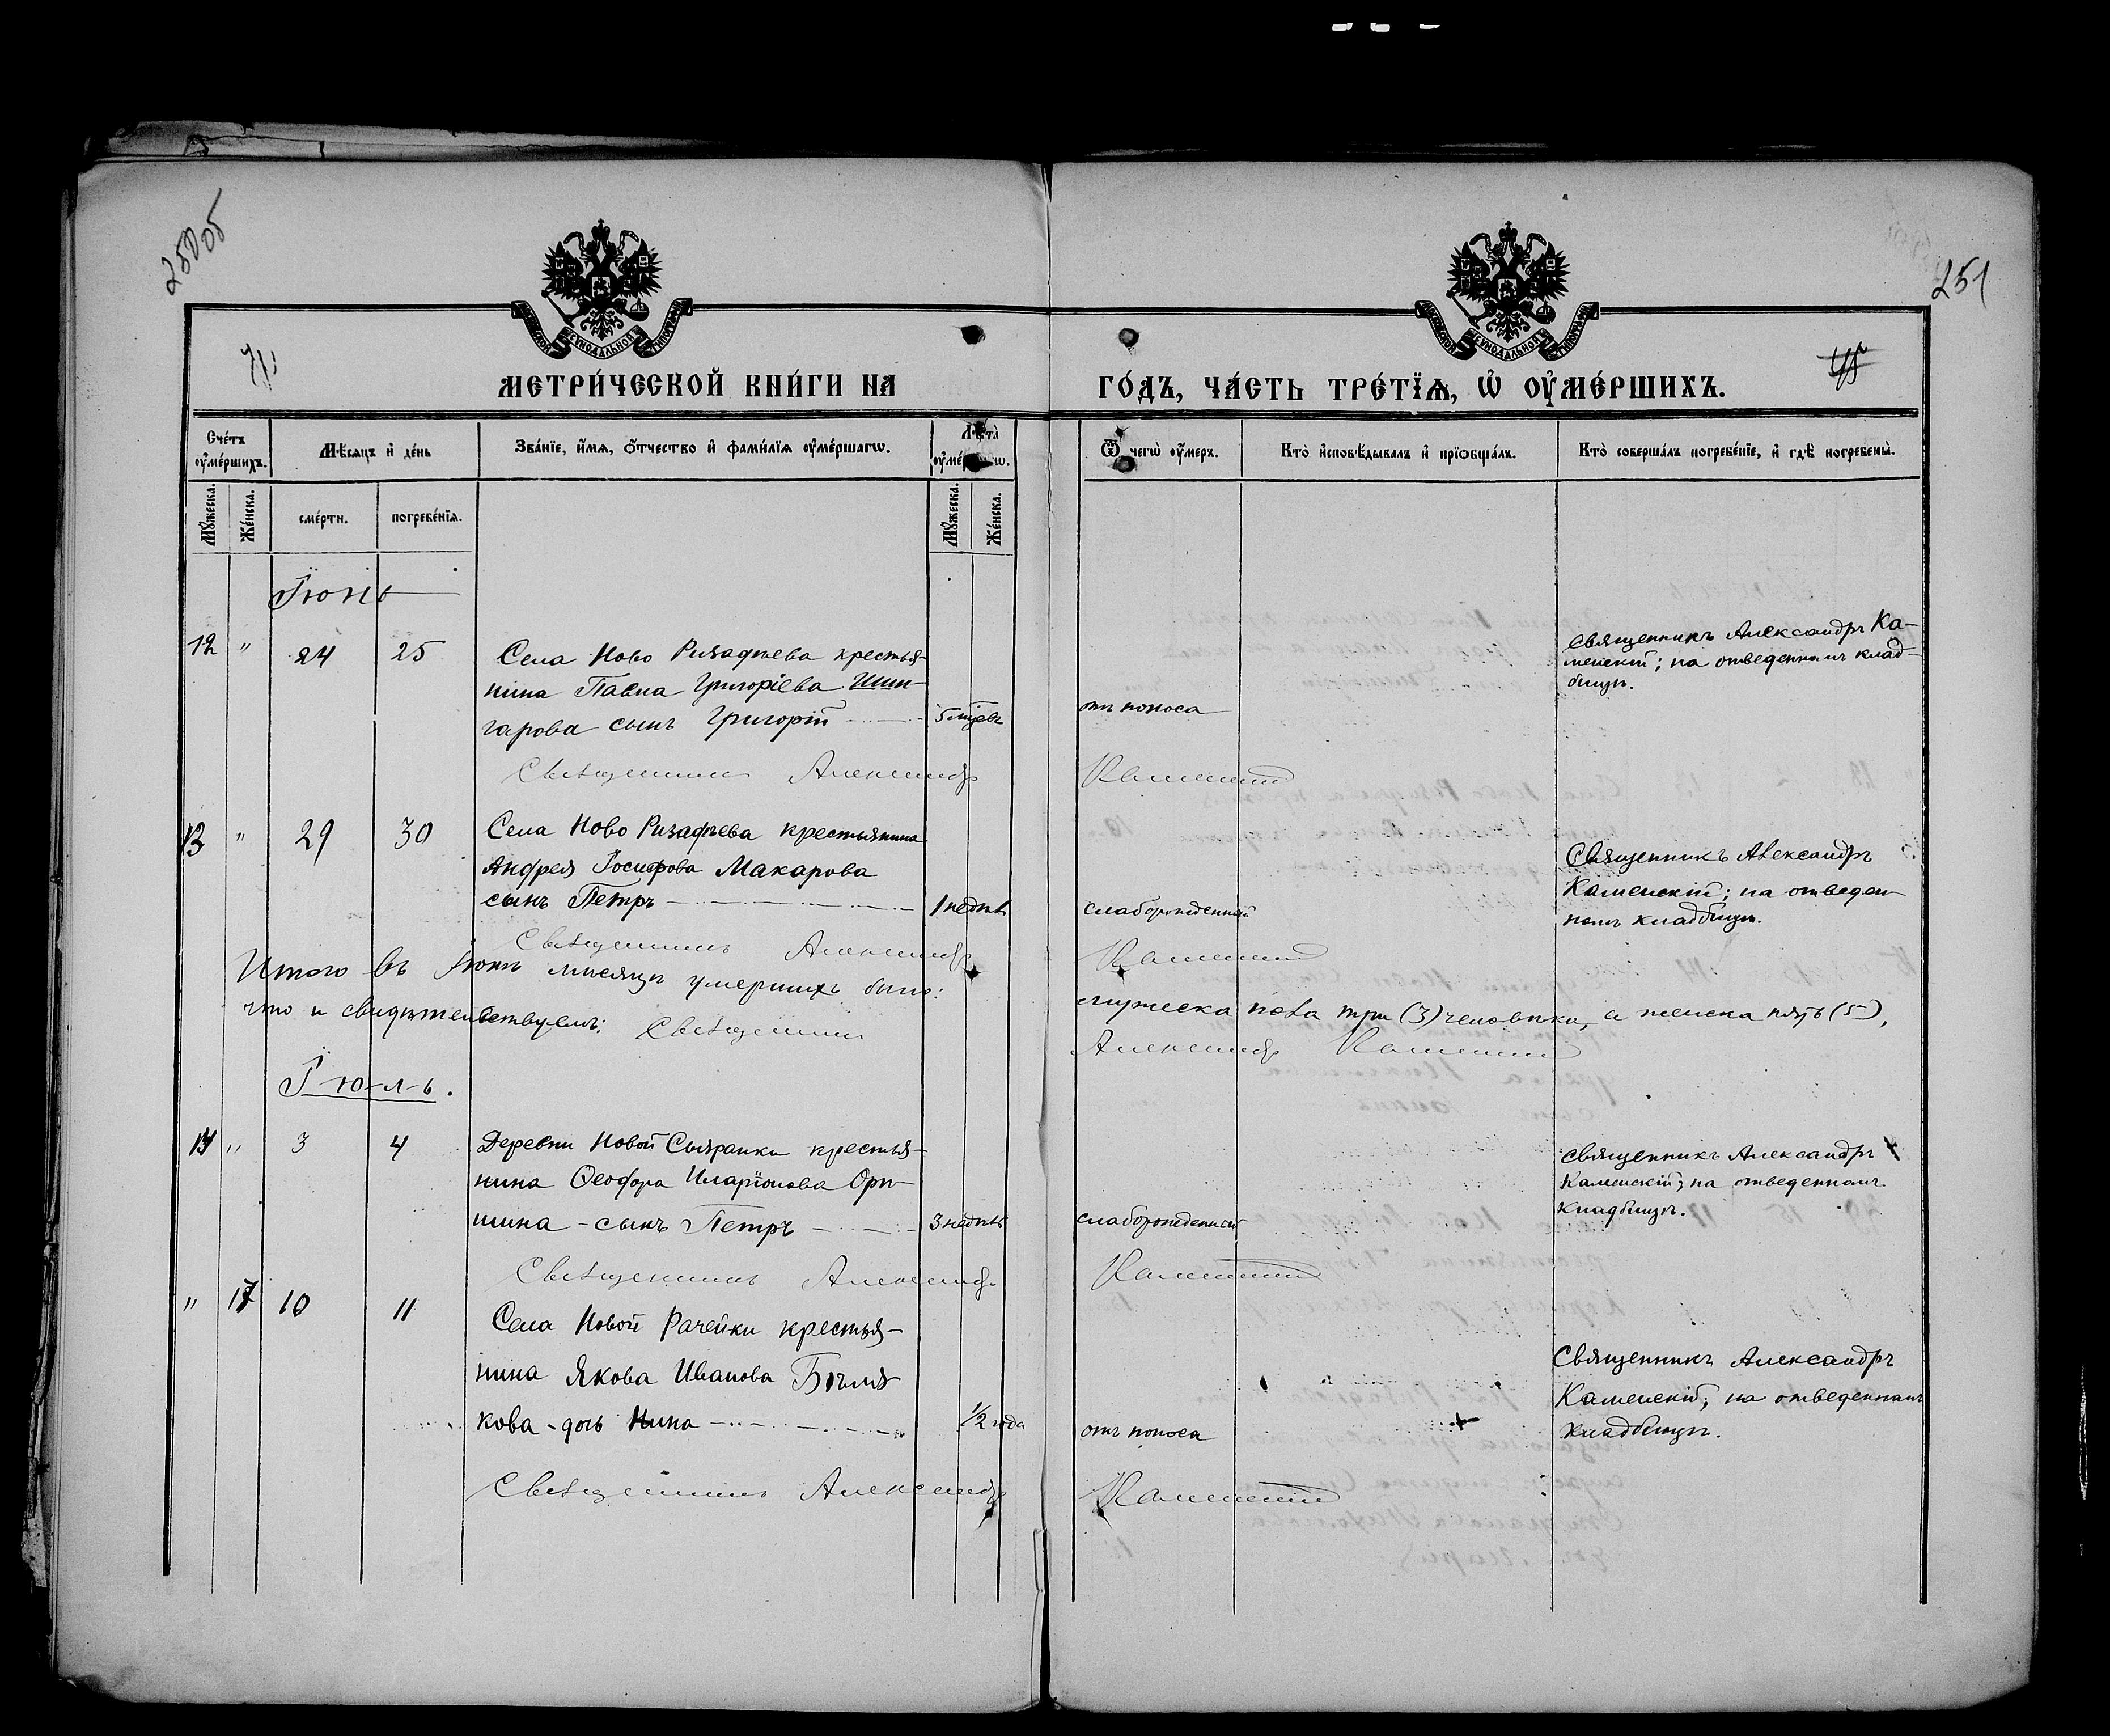 250 об
251
МЕТРИ́ЧЕСКОЙ КНИ́ГИ НА ГО́ДЪ, ЧА́СТЬ ТРЕ́ТЇѦ, Ѡ҆ ОУ҆МЕ́РШИХЪ.
Сче́тъ оу҆ме́ршихъ.
Мѣ́сяцъ и҆ де́нь
Зва́нїе, и҆́мя, ѻ҆́тчество и҆ фами́лїя оу҆ме́ршагѡ.
Лѣ́та оу҆ме́ршагѡ.
Ѿ чегѡ̀ оу҆́меръ.
Кто̀ и҆сповѣ́дывалъ и҆ прїѡбща́лъ.
Кто̀ соверша́лъ погребе́нїе, и҆ гдѣ̀ погребены̀.
Мꙋ́жеска.
Же́нска.
сме́рти.
погребе́нїя.
Мꙋ́жеска.
Же́нска.
Іюнь
12 " 24 25 Села Ново Ризадѣева крестья-
нина Павла Григоріева Шин-
гарова сынъ Григорій 5 мѣсяц. отъ поноса
Священникъ Александръ Ка-
менскій; на отведенномъ клад-
бищѣ.
Священникъ Александръ Каменскій
13 " 29 30 Села Ново Ризадѣева крестьянина
Андрея Іосифова Макарова
сынъ Петръ 1 недѣл. слаборожденный
Священникъ Александръ
Каменскій; на отведен-
номъ кладбищѣ.
Священникъ Александръ Каменскій
Итого въ Іюнѣ мѣсяцѣ умершихъ было: мужеска пола три (3) человѣка, а женска пять (5),
что и свидѣтельствуемъ: Священникъ Александръ Каменскій
Іюль.
14 " 3 4 Деревни Новой Сызранки крестья-
нина Ѳеодора Иларіонова Орѣ-
шина - сынъ Петръ 3 недѣл. слаборожденный
Священникъ Александръ
Каменскій; на отведенномъ
кладбищѣ.
Священникъ Александръ Каменскій
" 17 10 11 Села Новой Рачейки крестья-
нина Якова Иванова Бѣля-
кова - дочь Нина 1/2 года отъ поноса
Священникъ Александръ
Каменскій; на отведенномъ
кладбищѣ.
Священникъ Александръ Каменскій